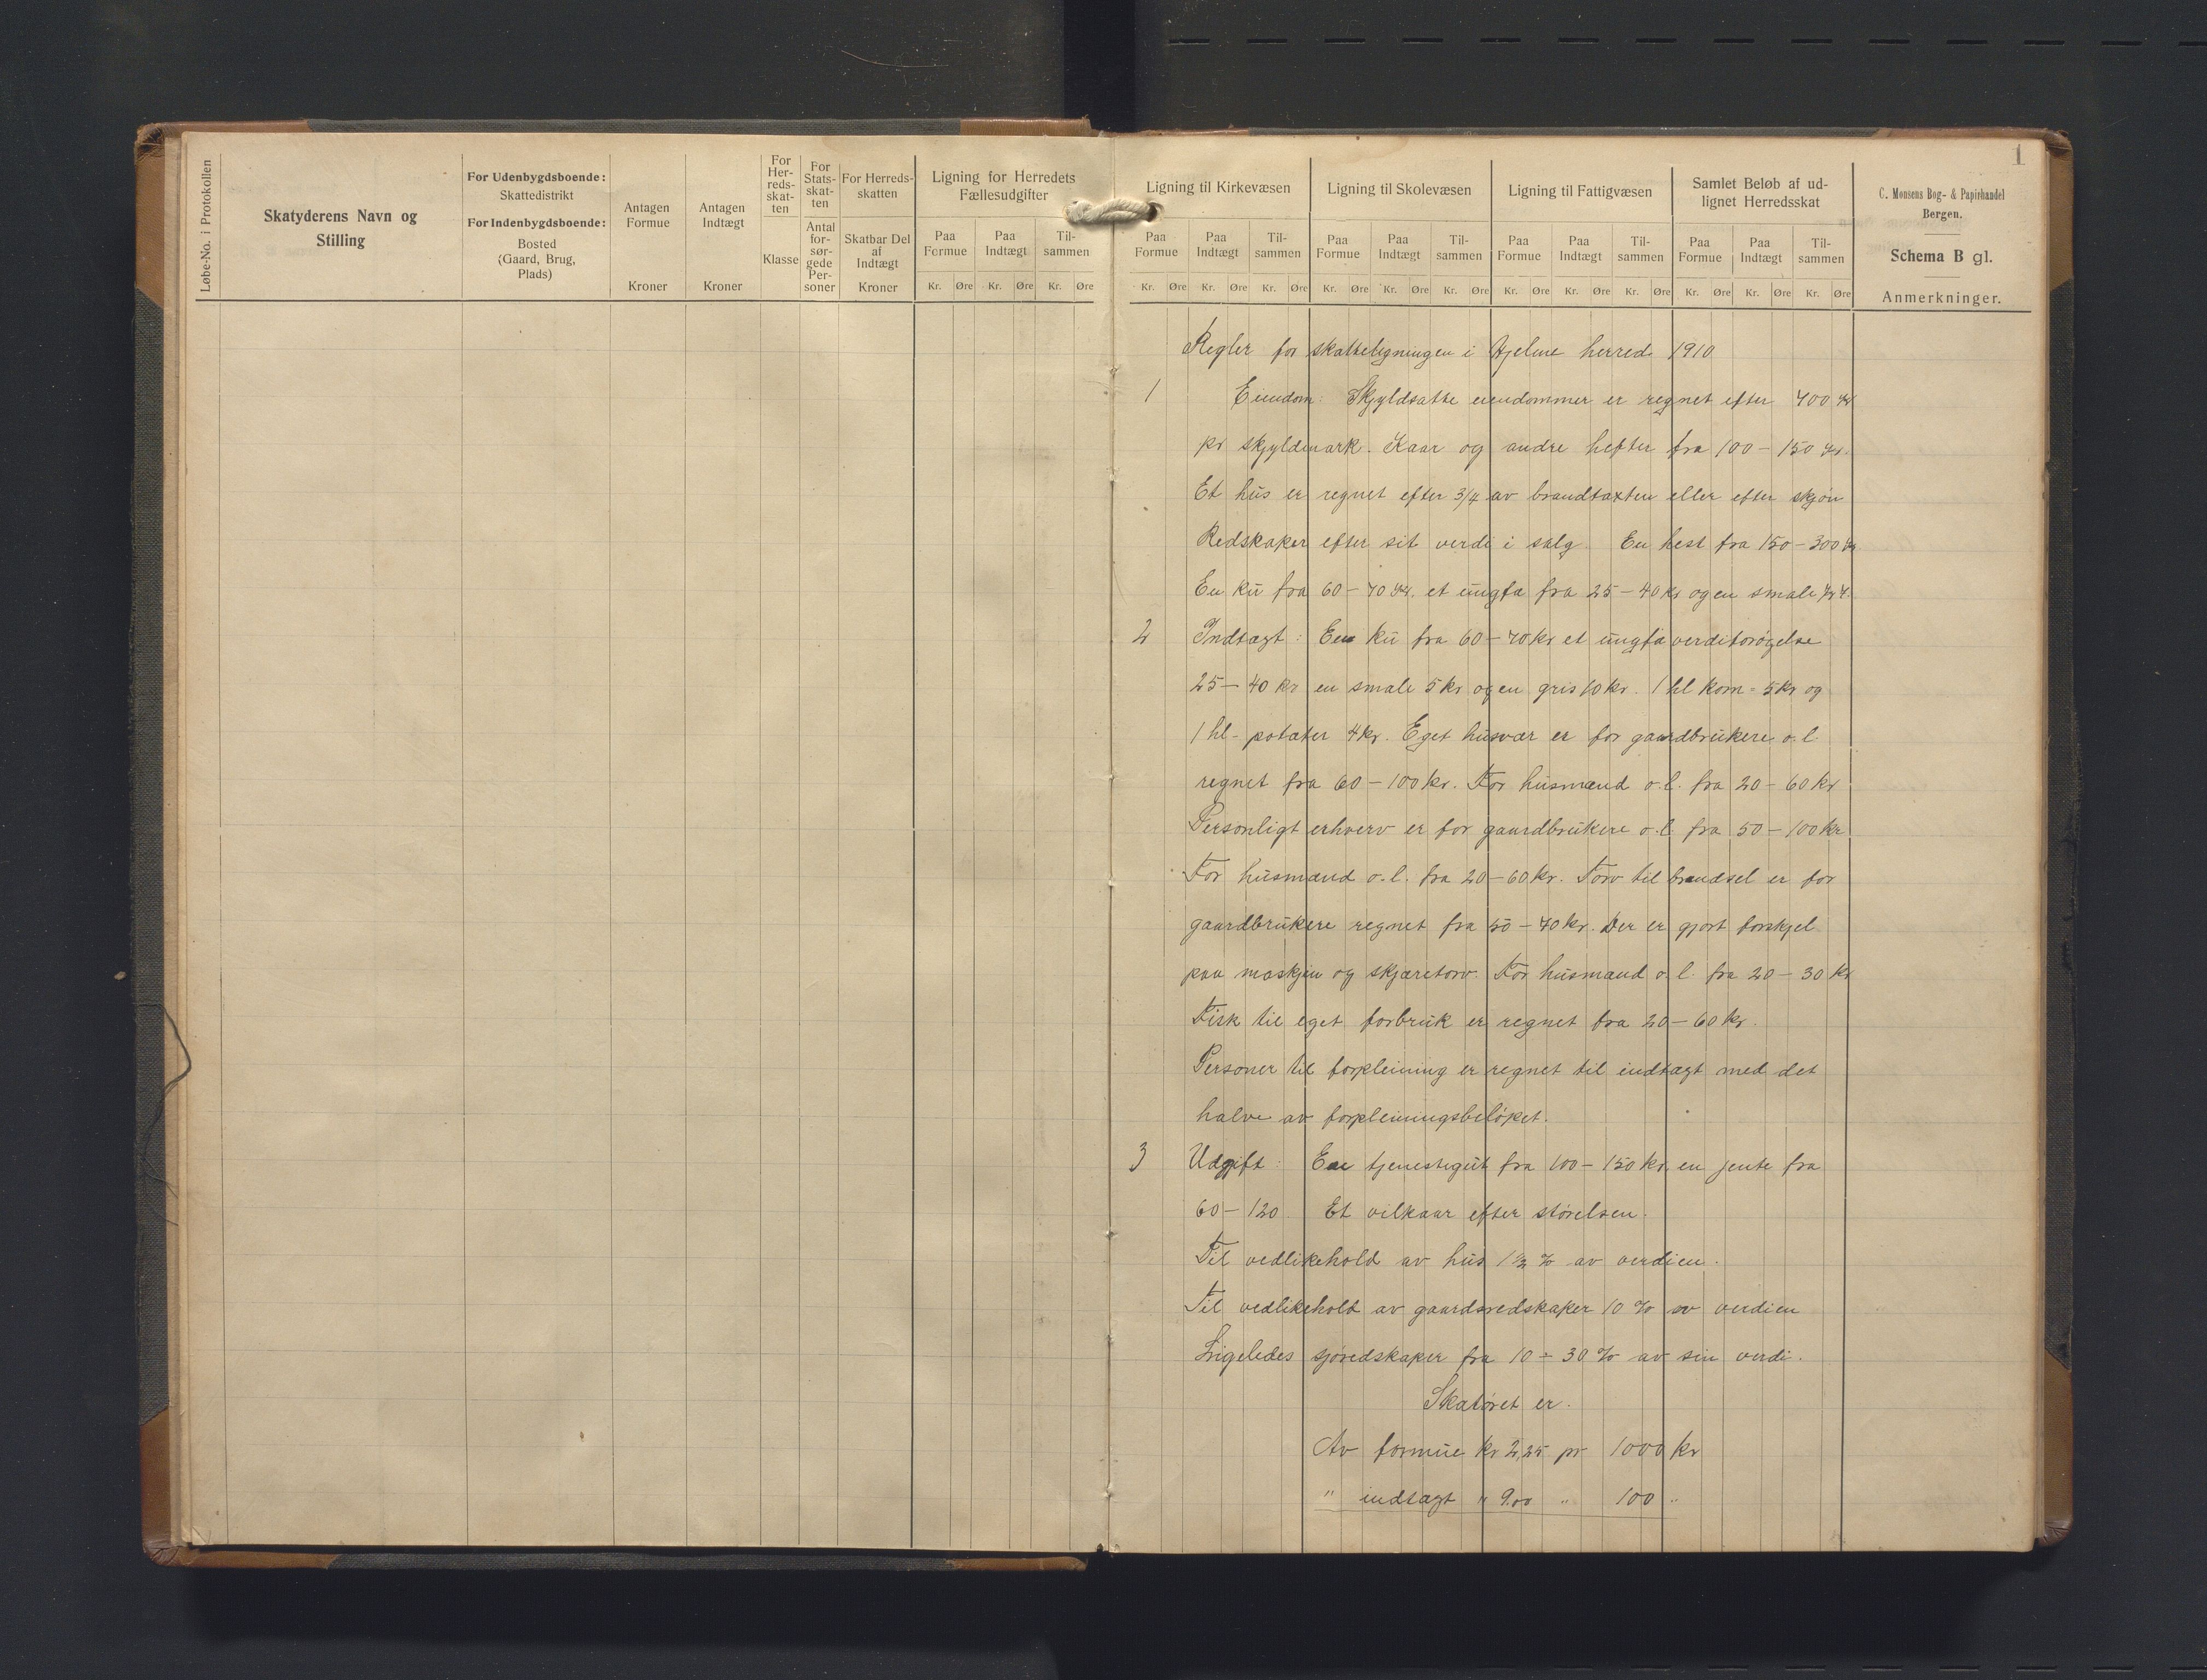 1
Løbe-No. i Protokollen
Skatyderens Navn og
Stilling
For Udenbygdsboende:
Skattedistrikt
For Indenbygdsboende:
Bosted
(Gaard, Brug,
Plads)
Antagen
Formue
Kroner
Antagen
Indtægt
Kroner
For
Her-
reds-
skat-
ten
Klasse
For
Stats-
skat-
ten
Antal
for-
sør-
gede
Per-
soner
For Herreds-
skatten
Skatbar Del
af
Indtægt
Kroner
Ligning for Herredets
Fællesudgifter
Paa Formue Paa Indtægt Til-sammen
Kr. Øre Kr. Øre Kr. Øre
Ligning til Kirkevæsen
Paa Formue Paa Indtægt Til-sammen
Kr. Øre Kr. Øre Kr. Øre
Ligning til Skolevæsen
Paa Formue Paa Indtægt Til-sammen
Kr. Øre Kr. Øre Kr. Øre
Ligning til Fattigvæsen
Paa Formue Paa Indtægt Til-sammen
Kr. Øre Kr. Øre Kr. Øre
Samlet Beløb af ud-
lignet Herredsskat
Paa Formue Paa Indtægt Til-sammen
Kr. Øre Kr. Øre Kr. Øre
C. Monsens Bog- & Papirhandel
Bergen.
Schema B gl.
Anmerkninger.
Regler for skatteligningen i Hjelme herred 1910
1 Eiendom: Skyldsatte eiendommer er regnet efter 400 kr
pr skyldmark. Kaar og andre hefter fra 100 – 150 kr.
Et hus er regnet efter 3/4 av brandtaxten eller efter skjøn
Redskaper efter sit verdi i salg. En hest fra 150 – 300 kr
En ku fra 60 – 70 kr. et ungfæ fra 25 – 40 kr og en smale kr 4.
2 Indtægt: En ku fra 60 – 70 kr et ungfæ verdiforøgelse
25 – 40 kr en smale 5 kr og en gris 10 kr. 1 hl korn = 5 kr og
1 hl - potater 4 kr. Eget husvær er for gaardbrukere o.l.
regnet fra 60 – 100 kr. For husmænd o.l. fra 20 – 60 kr
Personligt erhverv er for gaardbrukere o.l. fra 50 – 100 kr
For husmænd o.l. fra 20 – 60 kr. Torv til brændsel er for
gaardbrukere regnet fra 50 – 70 kr. Der er gjort forskjel
paa maskjin og skjæretorv. For husmænd o.l. fra 20 – 30 kr
Fisk til eget forbruk er regnet fra 20 – 60 kr.
Personer til forpleining er regnet til indtægt med det
halve av forpleiningsbeløpet.
3 Udgift: En tjenestegut fra 100 – 150 kr, en jente fra
60 – 120. Et vilkaar efter størelsen.
Til vedlikehold av hus 1 1/2 % av verdien.
Til vedlikehold av gaardsredskaper 10 % av verdien
Ligeledes sjøredskaper fra 10 – 30 % av sin verdi.
Skatøret er.
Av formue kr 2,25 pr 1000 kr
" indtægt " 9.00 " 100 "